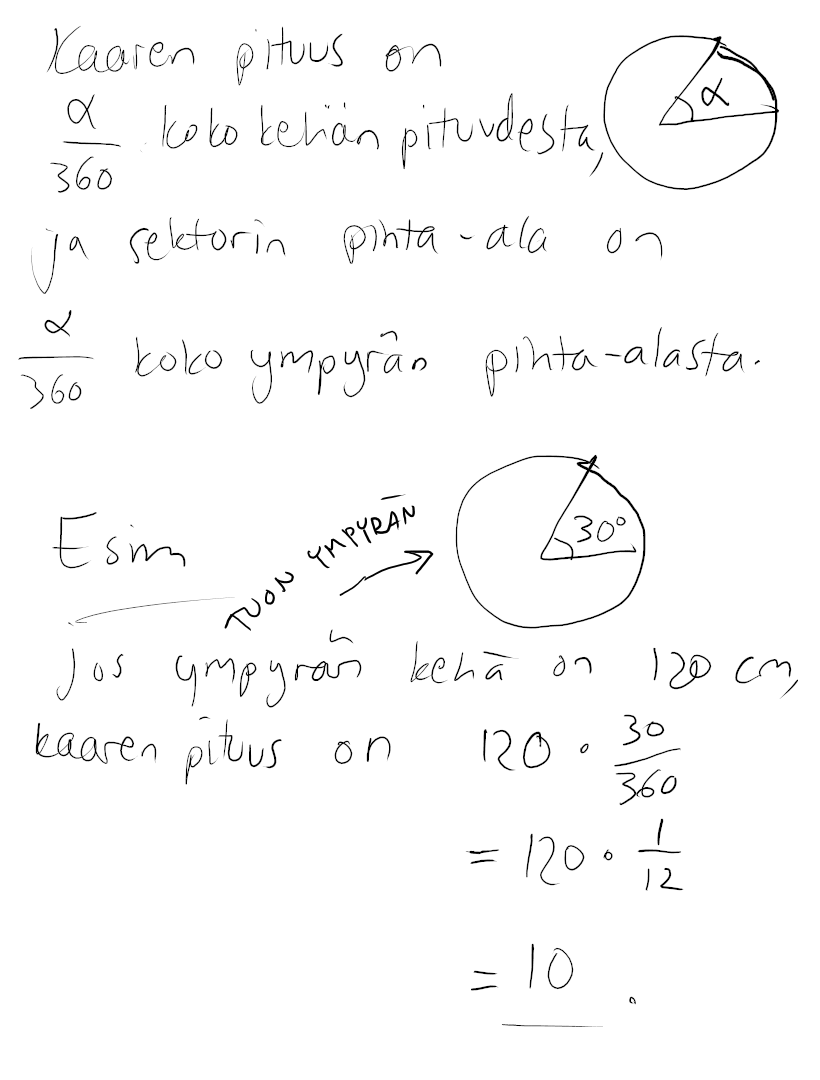 Kaaren pituus on
α/360 koko kehän pituudesta,
α
ja sektorin pinta-ala on
α/360 koko ympyrän pinta-alasta.
Esim
TUON YMPYRÄN
30°
Jos ympyrän kehä on 120 cm,
kaaren pituus on 120 · 30/360
= 120 · 1/12
= 10.